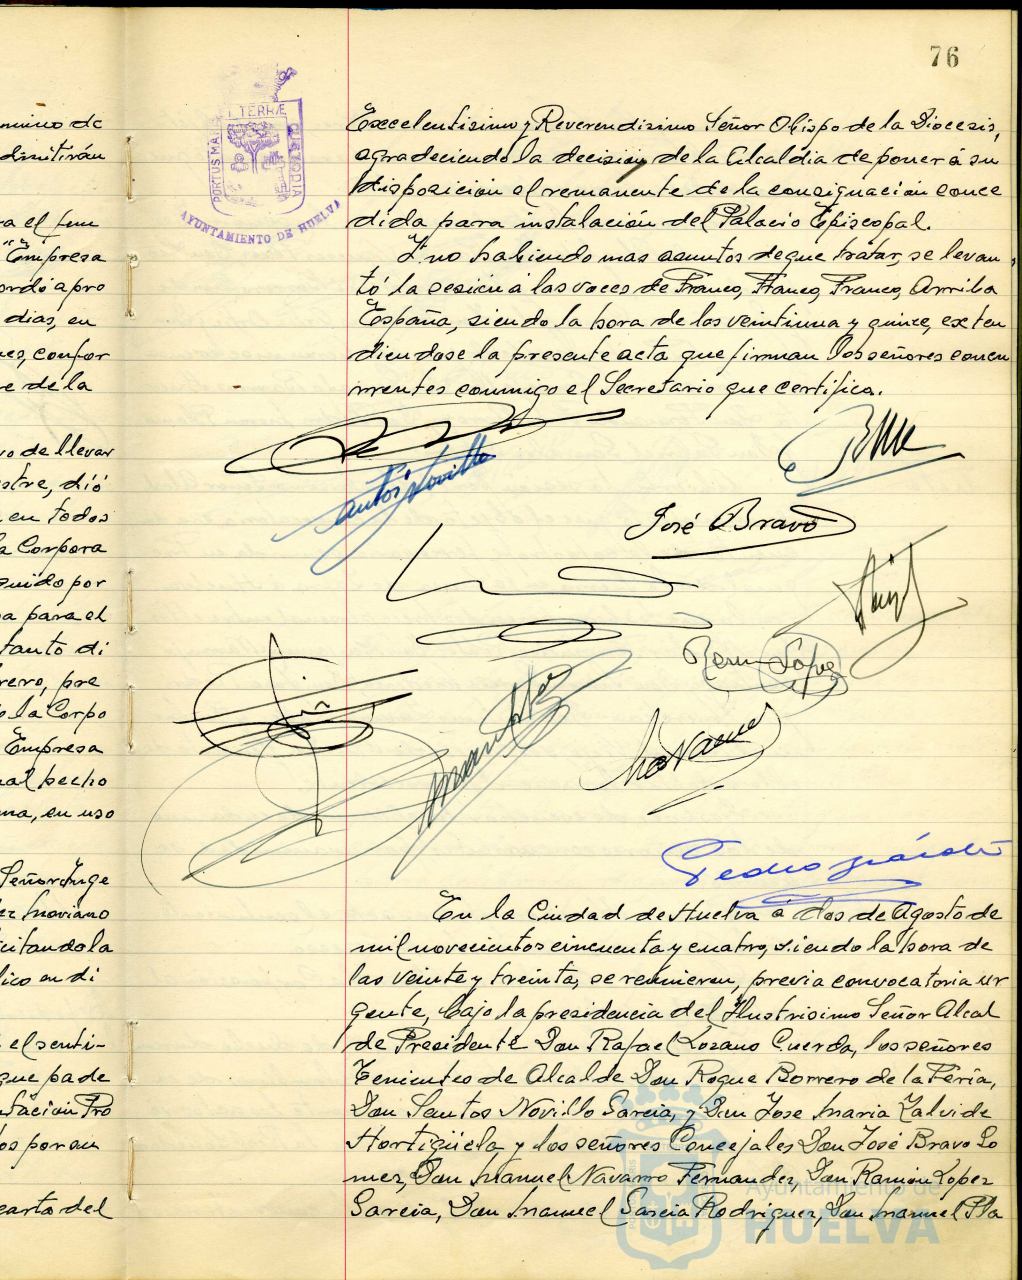 76
PORTUS MARIS
ET TERRÆ
CUSTODIA
AYUNTAMIENTO DE HUELVA
mino de
dmitirán
ra el
"Empresa
ordó apro
dias, en
confor
re de la
vo de llevar
dió
en todos
la Corpora
guido por
a para el
tanto di
rero, pre
la Corpo
Empresa
hecho
ma, en uso
Señor Inge
Moriano
citandola
lico en di
el senti-
que pade
tación Pro
os por su
carta del
Excelentisimo y Reverendisimo Señor Obispo de la Diocesis,
agradeciendo la decision de la Alcaldia de poner á su
disposición el remanente de la consignación conce
dida para instalación del Palacio Episcopal.
Y no habiendo mas asuntos de que tratar, se levan
tó la sesión á las voces de Franco, Franco, Franco, Arriba
España, siendo la hora de las veintiuna y quince, exten
diendose la presente acta que firman los señores concu
rrentes conmigo el Secretario que certifica.
José Bravo
Ram Lopez
Navarro
Pedro
En la Ciudad de Huelva á dos de Agosto de
mil novecientos cincuenta y cuatro, siendo la hora de
las veinte y treinta, se reunieron, previa convocatoria ur
gente, bajo la presidencia del Ilustrisimo Señor Alcal
de Presidente Don Rafael Lozano Cuerda, los señores
Tenientes de Alcalde Don Roque Borrero de la Feria,
Don Santos Novillo Garcia, y Don Jose Maria Zalvide
Hortigüela, y los señores Concejales Don José Bravo Go
mez, Don Manuel Navarro Fernandez, Don Ramón Lopez
Garcia, Don Manuel Garcia Rodriguez, Don Manuel Pla
Ayuntamiento de
HUELVA